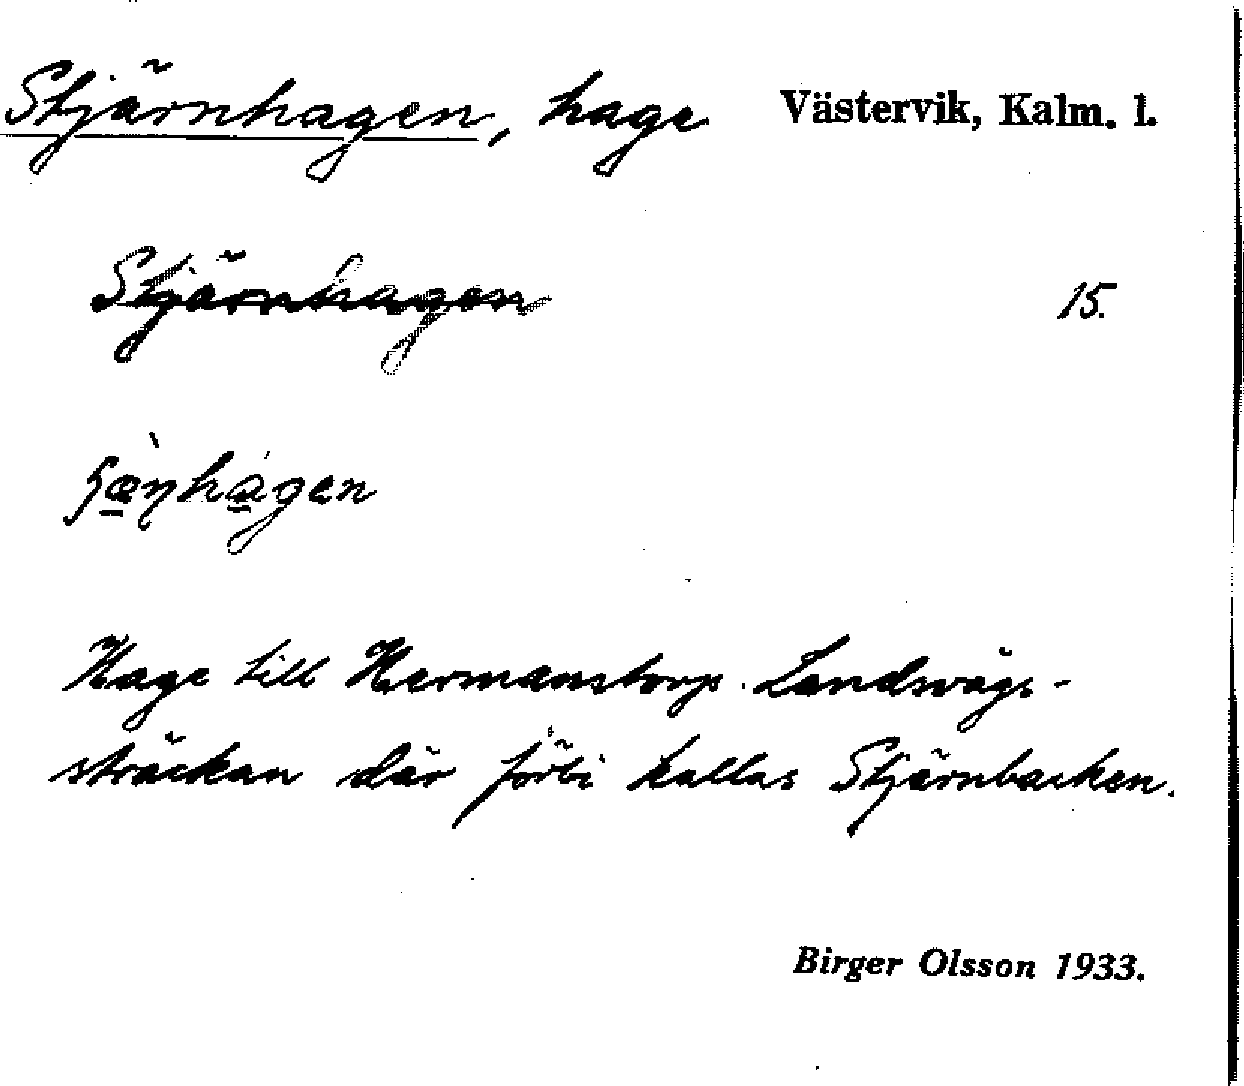 Stjärnhagen, hage Västervik, Kalm. l.
Stjärnhagen 15.
Hage till Hermanstorp. Landsvägs-
sträckan där förbi kallas Stjärnbacken.
Birger Olsson 1933.